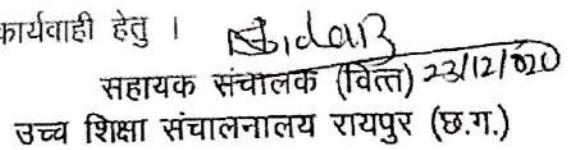 कार्यवाही हेतु ।
सहायक संचालक (वित्त) 23/12/020
उच्च शिक्षा संचालनालय रायपुर (छ.ग.)